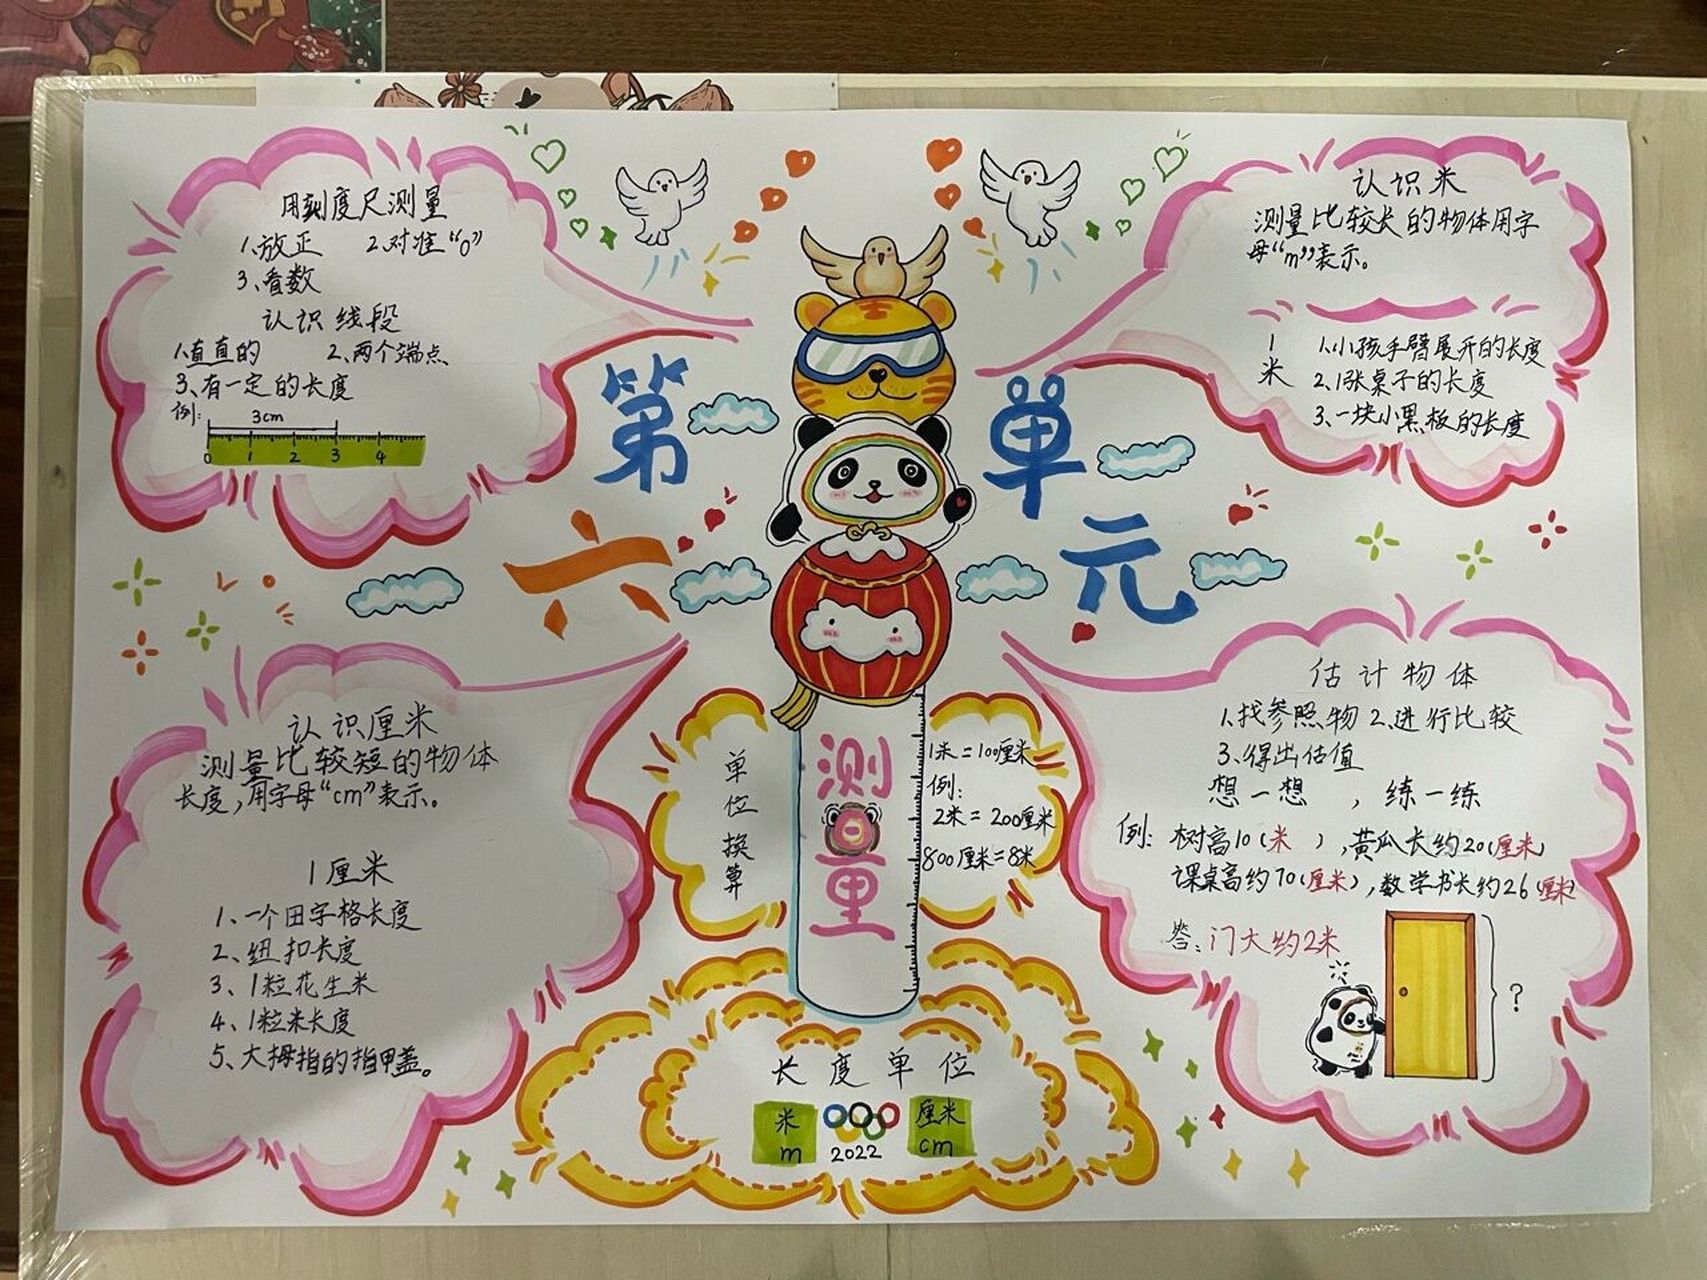 用刻度尺测量
1.放正 2.对准“0”
3、看数
认识线段
1.直直的 2、两个端点
3、有一定的长度
例:
3cm
0 1 2 3 4
认识米
测量比较长的物体用字
母“m”表示。
1米
1.小孩手臂展开的长度
2.1张桌子的长度
3.一块小黑板的长度
第六单元
认识厘米
测量比较短的物体
长度,用字母“cm”表示。
1厘米
1、一个田字格长度
2、纽扣长度
3、1粒花生米
4、1粒米长度
5、大拇指的指甲盖。
单位换算
测量
1米=100厘米
例:
2米=200厘米
800厘米=8米
估计物体
1.找参照物 2.进行比较
3.得出估值
想一想 , 练一练
例: 树高10(米 ),黄瓜长约20(厘米)
课桌高约70(厘米),数学书长约26(厘米)
答:门大约2米
?
长度单位
米
m
2022
厘米
cm